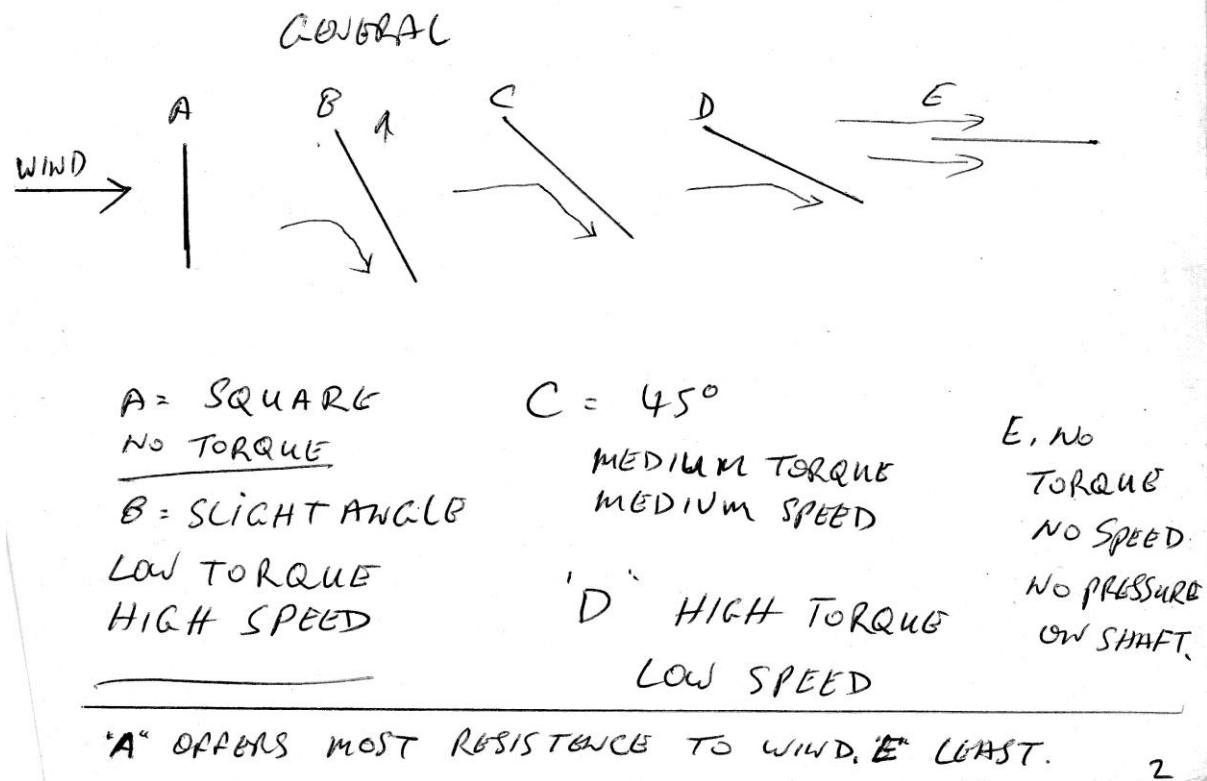 GENERAL
A
B
C
D
E
WIND
A = SQUARE
NO TORQUE
B = SLIGHT ANGLE
LOW TORQUE
HIGH SPEED
C = 45°
MEDIUM TORQUE
MEDIUM SPEED
'D' HIGH TORQUE
LOW SPEED
E. NO
TORQUE
NO SPEED
NO PRESSURE
ON SHAFT.
"A" OFFERS MOST RESISTENCE TO WIND. "E" LEAST.
2